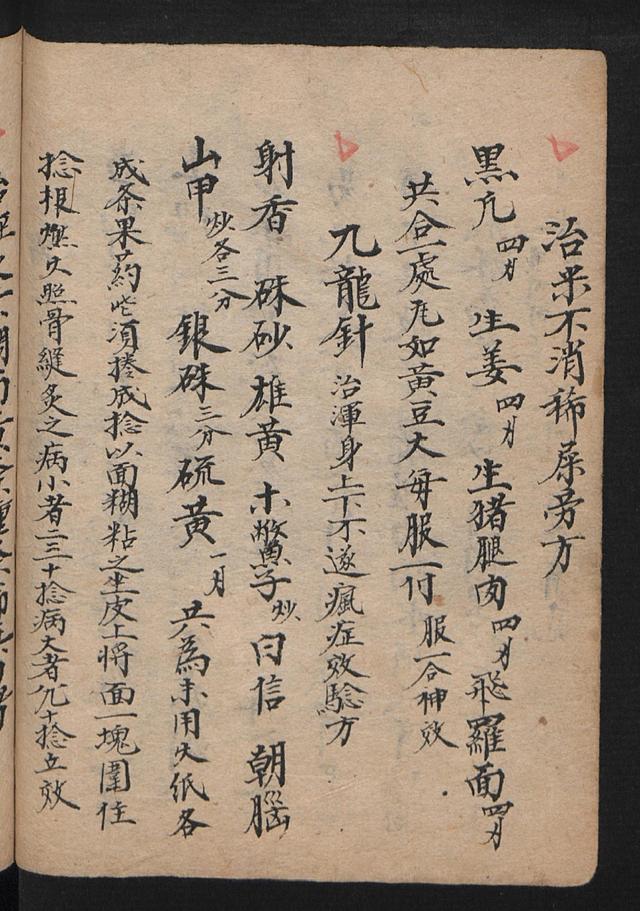 治米不消稀屎旁方
黑凢 四月 生姜 四月 生猪腿肉 四月 飛羅面 四月
共合一處凢如黃豆大每服一付 服一合神效
九龍針 治渾身上下不遂瘋症效驗方
射香 硃砂 雄黃 木鱉子 炒 白信 朝腦
山甲 炒各三分 銀硃 三分 硫黃 一月 共為末用火紙各
成条果药些須捲成捻以面糊粘之坐皮上將面一塊圍住
捻根燃火照骨縫炙之病小者二三十捻病大者九十捻立效